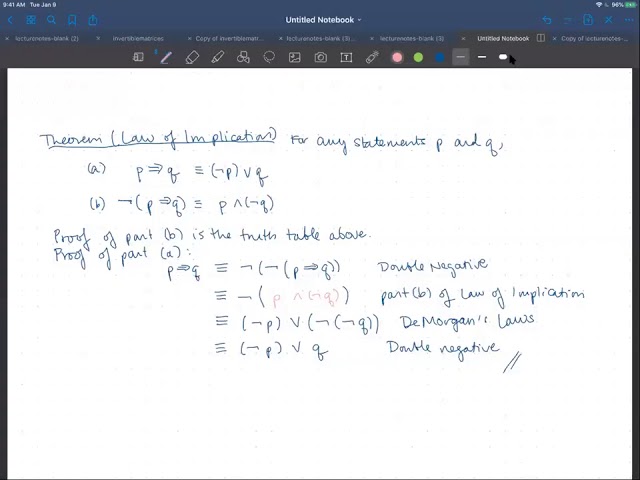 9:41 AM Tue Jan 9
96%
Untitled Notebook
lecturenotes-blank (2)
invertiblematrices
Copy of invertiblematri...
lecturenotes-blank (3)
lecturenotes-blank (3)
Untitled Notebook
Copy of lecturenotes-...
Theorem (Law of Implication) For any statements p and q,
(a) p ⇒ q ≡ (¬p) ∨ q
(b) ¬(p ⇒ q) ≡ p ∧ (¬q)
Proof of part (b) is the truth table above.
Proof of part (a):
p ⇒ q ≡ ¬(¬(p ⇒ q)) Double Negative
≡ ¬(p ∧ (¬q)) part (b) of Law of Implication
≡ (¬p) ∨ (¬(¬q)) DeMorgan's Laws
≡ (¬p) ∨ q Double negative //